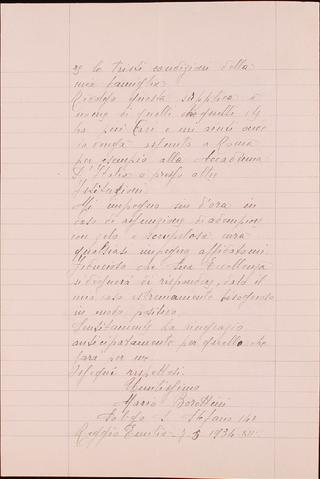 le tristi condizioni della
mia famiglia.
Rivolgo questa supplica a
nome di quelle che
ha pei Suoi e mi scusi
se a Roma
per esempio alla Accademia
d'Italia o presso altre
Istituzioni.
Mi impegno sin d'ora in
caso di assunzione di adempiere
con zelo e scrupolosa cura
qualsiasi impegno affidatomi.
Fiducioso che Sua Eccellenza
si degnerà di rispondere, dato il
mio caso estremamente bisognoso
in modo positivo.
Sentitamente La ringrazio
anticipatamente per quello che
farà per me
Ossequi rispettosi.
Umilissimo
Mario
S. Stefano
Reggio Emilia 1934 XII